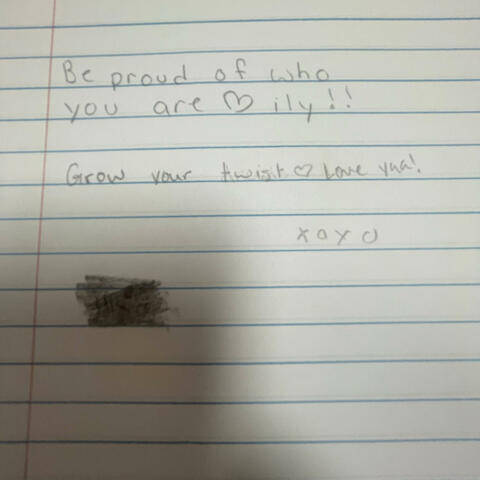 Be proud of who
you are ♡ ily!!
Grow your twist ♡ Love yaa!
xoxo